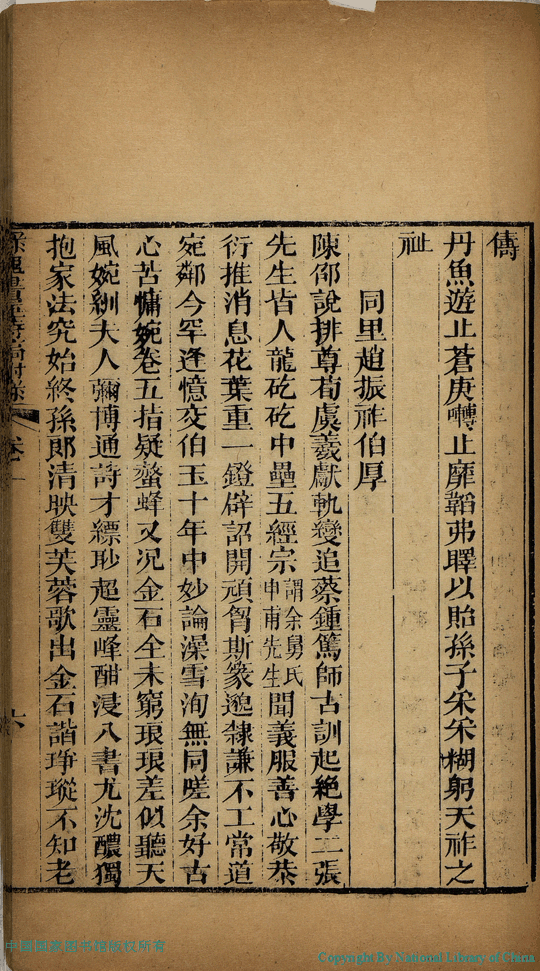 儔
丹魚遊止蒼庚囀止靡鞱弗驛以貽孫子朱朱糊躬天祚之
祉
同里趙振祚伯厚
陳邵說排尊荀虞羲獻軌變追蔡鍾篤師古訓起絕學二張
先生皆人龍矻矻中壘五經宗謂余舅氏申甫先生聞義服善心敬恭
衍推消息花葉重一鐙辟詔開頑胷斯篆邈隸謙不工常道
宛鄰今罕逢憶交伯玉十年中妙論澡雪洵無同嗟余好古
心苦慵婉卷五指疑螫蜂又況金石全未窮琅琅差似聽天
風婉紃夫人彌博通詩才縹眇超靈峰酣浸八書尤沈醲獨
抱家法究始終孫郎清映雙芙蓉歌出金石諧琤瑽不知老
六
中国国家图书馆版权所有
Copyright By National Library of China